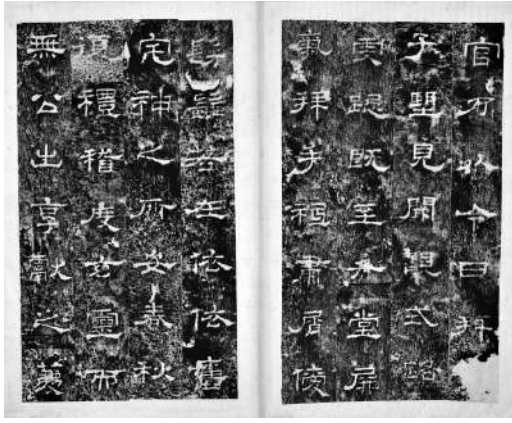 官乃以令日拜
子望見闕觀式路
虔跽既至升堂屏
氣拜手祗肅屑僾
髣髴若在依依舊
宅神之所安春秋
復禮稽度玄靈而
無公出享獻之薦